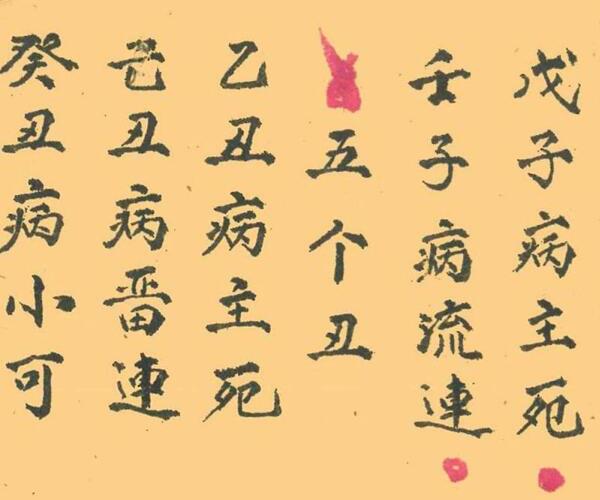 戊子病主死
壬子病流連
五个丑
乙丑病主死
己丑病畱連
癸丑病小可